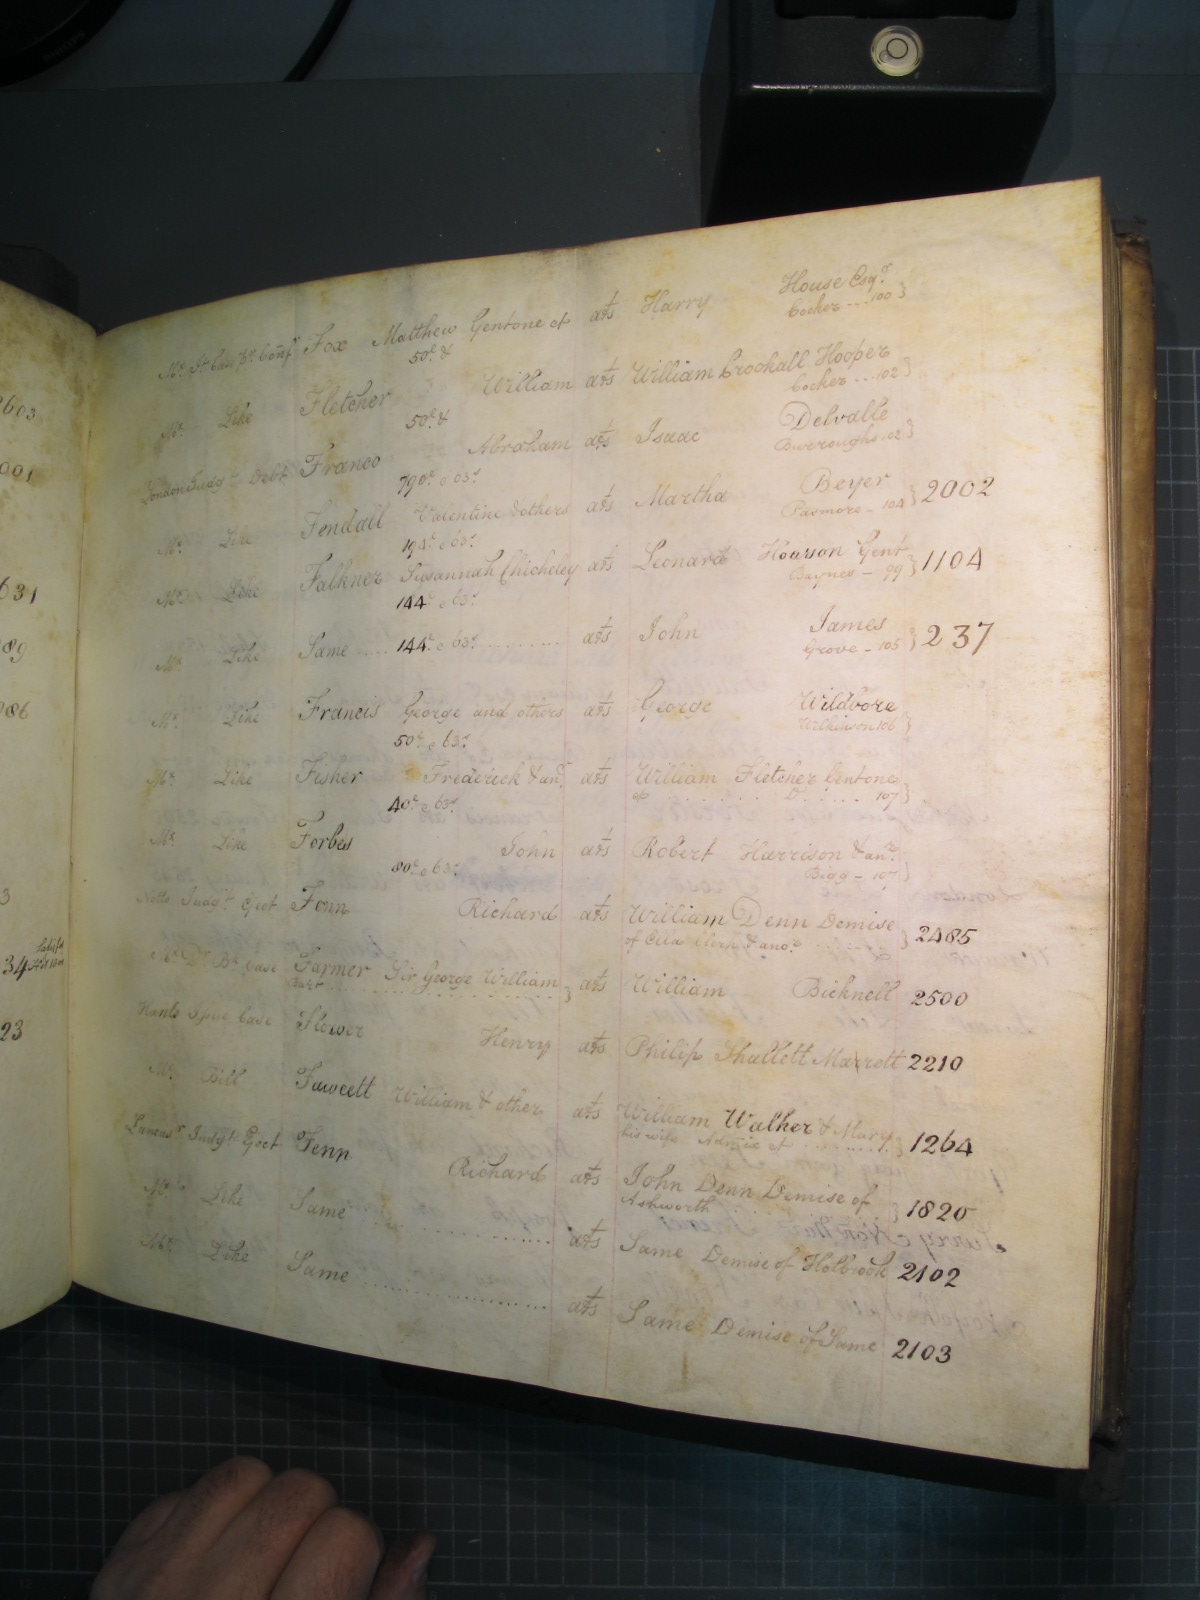 Fox Matthew Gentone &c ats Harry House Esqr.
50£ & Cocker --- 100
Mx. Like Fletcher William ats William Brookall Hooper
50£ & Cocker --- 102
London Judgt. Debt Franco Abraham ats Isaac Delvalle
790£ & 63s Burroughs 102
Mx. Like Fendall Valentine & others ats Martha Beyer 2002
194£ & 63s Pasmore - 104
Mx. Like Falkner Susannah Chicheley ats Leonard Howson Gent 1104
144£ & 63s Baynes - 99
Mx. Like Same 144£ & 63s ats John James 237
Grove - 105
Mx. Like Francis George and others ats George Wildvore
50£ & 63s Wilkinson 106
Mx. Like Fisher Frederick & anr. ats William Fletcher Gentone
40£ & 63s &c D. 107
Mx. Like Forbes John ats Robert Harrison & anr.
80£ & 63s Bigg - 107
Notts Judgt. Eject Fenn Richard ats William Denn Demise 2485
of Clerk & anor.
Mx. Dr. Br. Case Farmer Sir George William ats William Bicknell 2500
Bart
Hants Spue Case Flower Henry ats Philip Shallett Marrett 2210
Mx. Bill Fawcett William & other ats William Walker & Mary 1264
his wife Admix &c
Lancasr. Judgt. Eject Fenn Richard ats John Denn Demise of 1820
Ashworth
Mx. Like Same ats Same Demise of Holbrook 2102
Mx. Like Same ats Same Demise of Same 2103
2603
001
631
89
986
3
34
23